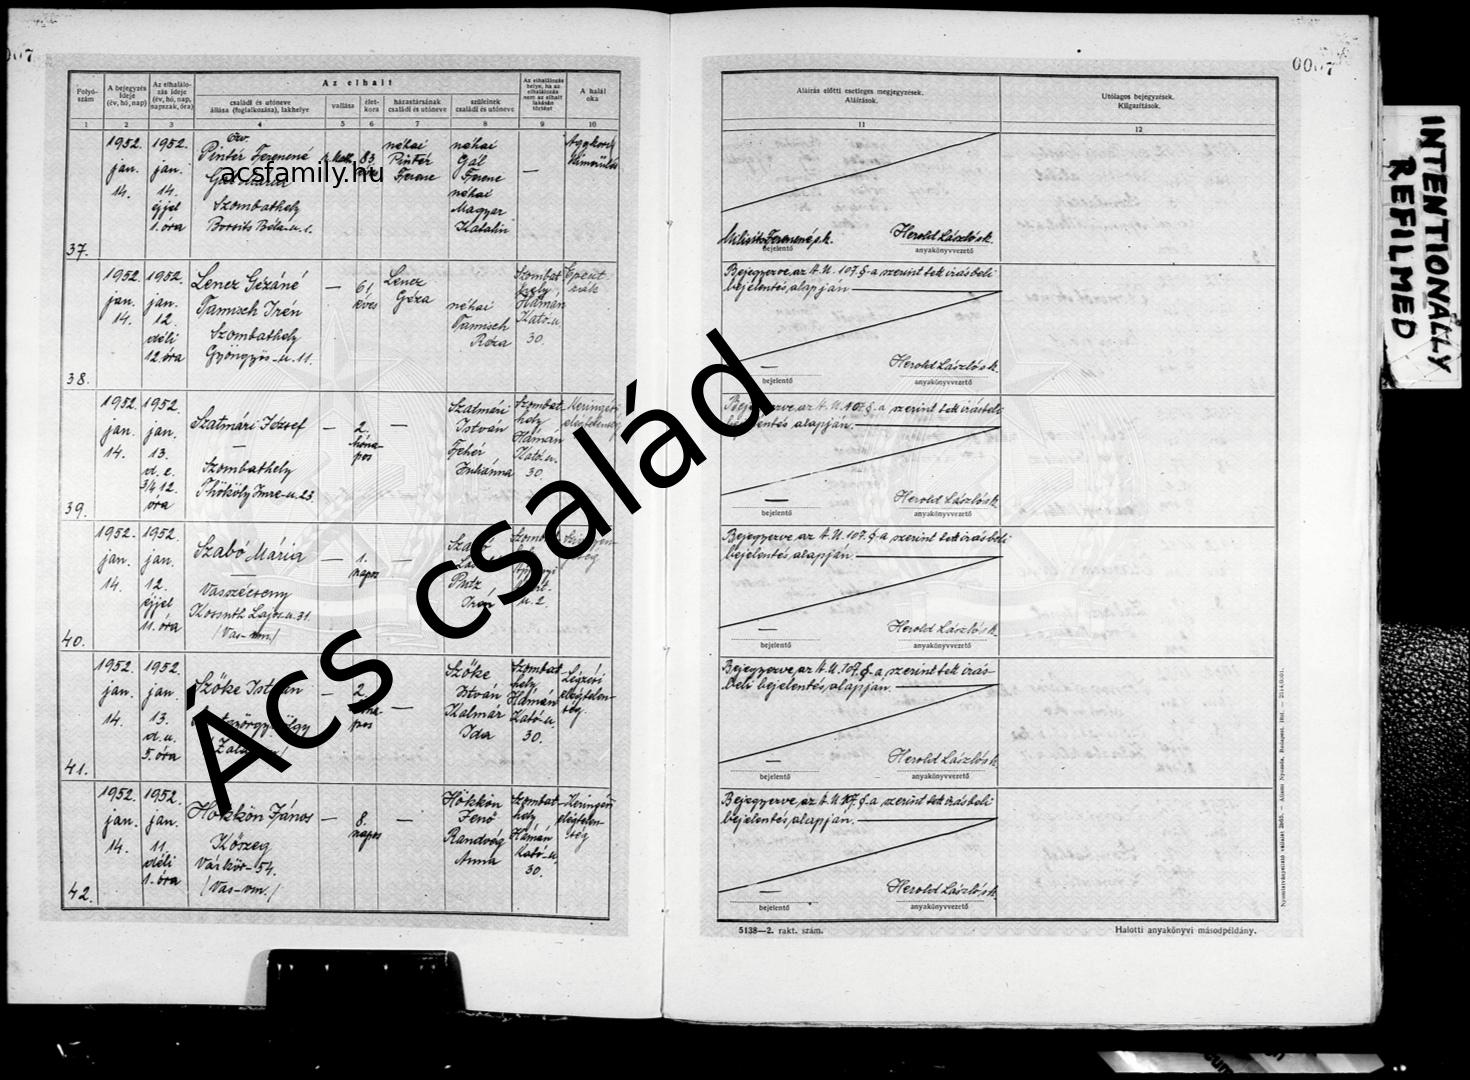 0007
Folyó-
szám
A bejegyzés
ideje
(év, hó, nap)
Az elhalálo-
zás ideje
(év, hó, nap,
napszak, óra)
Az elhalt
családi és utóneve
állása (foglalkozása), lakhelye
vallása
élet-
kora
házastársának
családi és utóneve
szüleinek
családi és utóneve
Az elhalálozás
helye, ha az
elhalálozás
nem az elhalt
lakásán
történt
A halál
oka
1 2 3 4 5 6 7 8 9 10
37.
1952.
jan.
14.
1952.
jan.
14.
éjjel
1. óra
Özv.
Pintér Ferencné
Szombathely
83
néhai
Pintér
Ferenc
néhai
Gál
Ferenc
néhai
Magyar
Katalin
—
38.
1952.
jan.
14.
1952.
jan.
12.
déli
12. óra
Lencz Gézáné
Tamisch Irén
Szombathely
Gyöngyös-u. 11.
—
61
éves
Lencz
Géza
néhai
Tamisch
Róza
Szombat-
hely,
Hámán
Kató-u.
30.
39.
1952.
jan.
14.
1952.
jan.
13.
d. e.
3/4 12.
óra
Szatmári József
—
Szombathely
Thököly Imre-u. 23
—
2.
hóna-
pos
—
Szatmári
István
Fehér
Julianna
Szombat-
hely
Hámán
Kató-u.
30.
Keringési
elégtelenség
40.
1952.
jan.
14.
1952.
jan.
12.
éjjel
11. óra
Szabó Mária
—
Vasszécseny
Kossuth Lajos-u. 31.
/Vas-vm./
—
1.
napos
—
41.
1952.
jan.
14.
1952.
jan.
13.
d. u.
5. óra
Szőke István
—
2
—
Szőke
István
Kalmár
Ida
Szombat-
hely
Hámán
Kató-u.
30.
Légzési
elégtelen-
ség
42.
1952.
jan.
14.
1952.
jan.
11.
déli
1. óra
János
Kőszeg
Várkör-54.
/Vas-vm./
—
8.
napos
—
Jenő
Anna
Szombat-
hely
Hámán
Kató-u.
30.
Keringési
elégtelen-
ség
0007
Aláírás előtti esetleges megjegyzések.
Aláírások.
Utólagos bejegyzések.
Kiigazítások.
11 12
Herold László s.k.
bejelentő anyakönyvvezető
Bejegyezve az A.U. 107. §-a szerint tett írásbeli
bejelentés alapján. —
— Herold László s.k.
bejelentő anyakönyvvezető
Bejegyezve az A.U. 107. §-a szerint tett írásbeli
bejelentés alapján. —
— Herold László s.k.
bejelentő anyakönyvvezető
Bejegyezve az A.U. 107. §-a szerint tett írásbeli
bejelentés alapján. —
— Herold László s.k.
bejelentő anyakönyvvezető
Bejegyezve az A.U. 107. §-a szerint tett írás-
beli bejelentés alapján. —
— Herold László s.k.
bejelentő anyakönyvvezető
Bejegyezve az A.U. 107. §-a szerint tett írásbeli
bejelentés alapján. —
— Herold László s.k.
bejelentő anyakönyvvezető
5138—2. rakt. szám.
Halotti anyakönyvi másodpéldány.
INTENTIONALLY
REFILMED
acsfamily.hu
Ács család